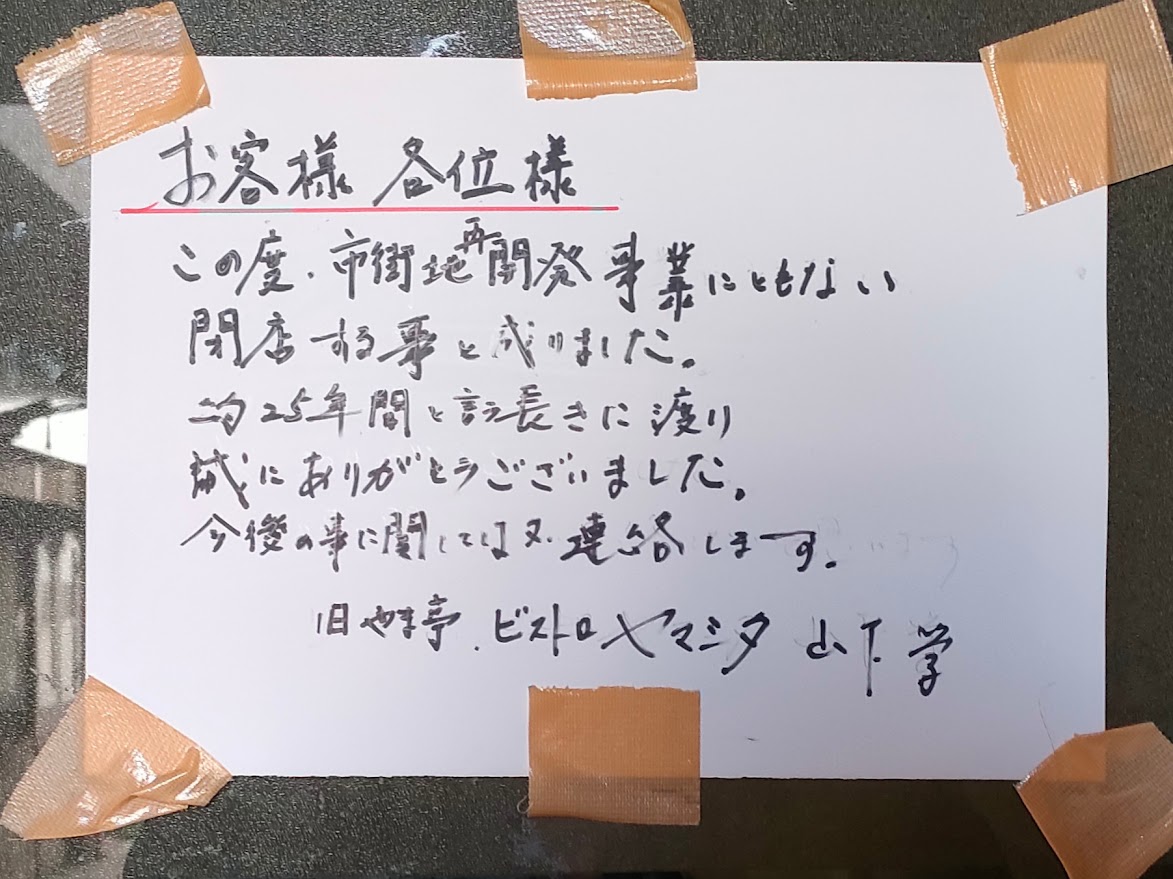 お客様 各位様
この度、市街地再開発事業にともない
閉店する事と成りました。
約25年間と言う長きに渡り
誠にありがとうございました。
今後の事に関しては又、連絡します。
旧やま亭、ビストロヤマシタ 山下 学